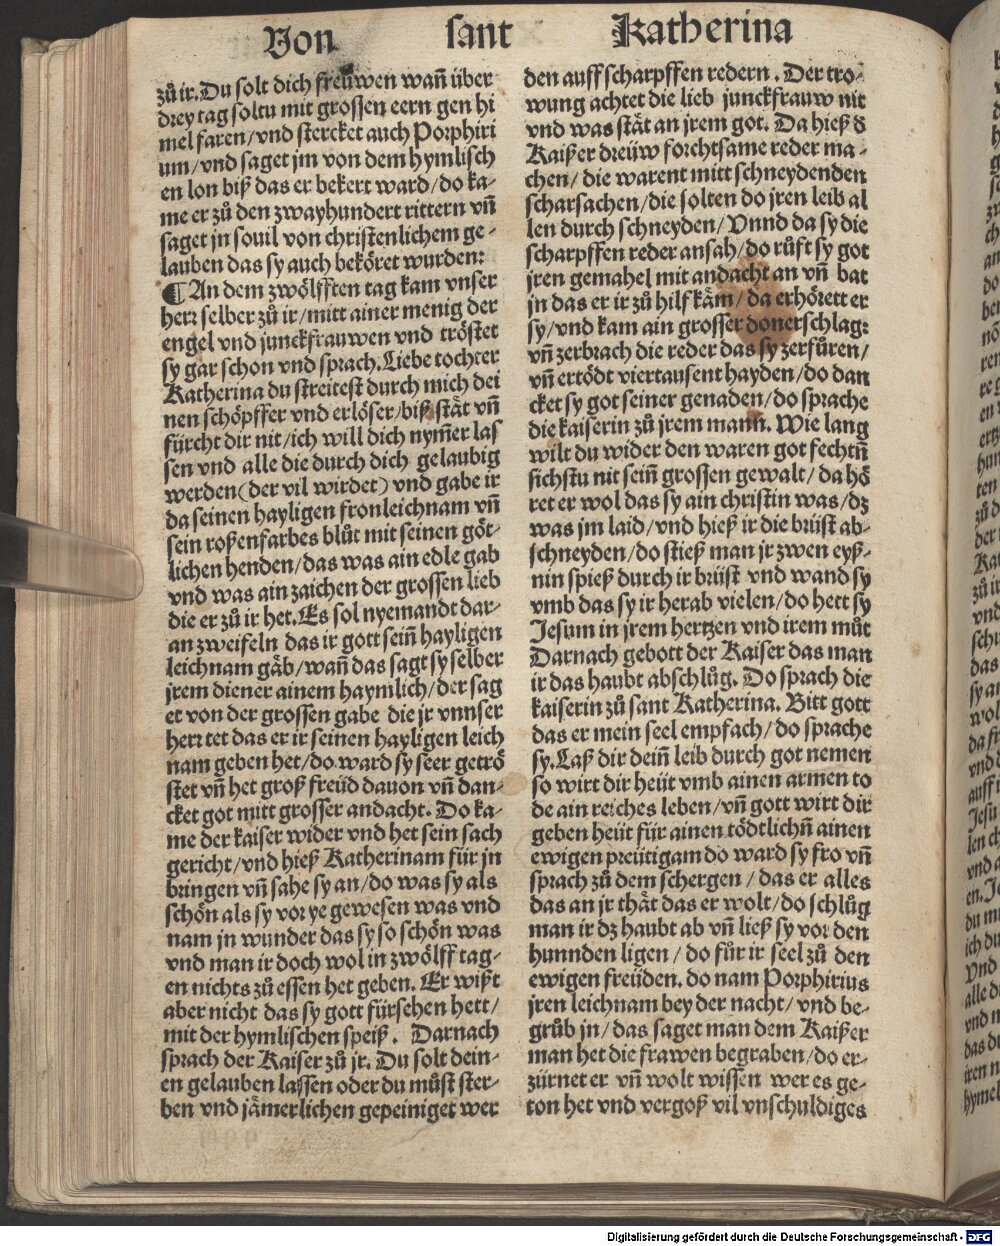 Von sant Katherina
zů ir. Du solt dich freüwen wañ über
drey tag soltu mit grossen eern gen hi
mel faren/vnd stercket auch Porphiri
um/vnd saget jm von dem hymlisch
en lon biß das er bekert ward/do ka-
me er zů den zwayhundert rittern vñ
saget jn souil von christenlichem ge-
lauben das sy auch bekōret wurden:
¶ An dem zwölfften tag kam vnser
herr selber zů ir/mitt ainer menig der
engel vnd junckfrauwen vnd tröstet
sy gar schon vnd sprach. Liebe tochter
Katherina du streitest durch mich dei
nen schöpffer vnd erlöser/biß stät vñ
fürcht dir nit/ich will dich nym̄er las
sen vnd alle die durch dich gelaubig
werden(der vil wirdet) vnd gabe ir
da seinen hayligen fronleichnam vñ
sein roßenfarbes blůt mit seinen göt-
lichen henden/das was ain edle gab
vnd was ain zaichen der grossen lieb
die er zů ir het. Es sol nyemandt dar-
an zweifeln das ir gott sein̄ hayligen
leichnam gäb/wañ das sagt sy selber
jrem diener ainem haymlich/der sag
et von der grossen gabe die jr vnnser
herr tet das er ir seinen hayligen leich
nam geben het/do ward sy seer getrö
stet vñ het groß freüd dauon vñ dan-
cket got mitt grosser andacht. Do ka-
me der kaiser wider vnd het sein sach
gericht/vnd hieß Katherinam für jn
bringen vñ sahe sy an/do was sy als
schön als sy vor ye gewesen was vnd
nam jn wunder das sy so schön was
vnd man ir doch wol in zwölff tag-
en nichts zů essen het geben. Er wißt
aber nicht das sy gott fürsehen hett/
mit der hymlischen speiß. Darnach
sprach der Kaiser zů jr. Du solt dein-
en gelauben lassen oder du můst ster-
ben vnd jämerlichen gepeiniget wer
den auff scharpffen redern. Der tro-
wung achtet die lieb junckfrauw nit
vnd was stät an jrem got. Da hieß d̕
Kaißer dreüw forchtsame reder ma-
chen/die warent mitt schneydenden
scharsachen/die solten do jren leib al
len durch schneyden/Vnnd da sy die
scharpffen reder ansah/do růft sy got
jren gemahel mit andacht an vñ bat
jn das er ir zů hilf käm/da erhörett er
sy/vnd kam ain grosser donerschlag:
vñ zerbrach die reder das sy zerfůren/
vñ ertödt viertausent hayden/do dan
cket sy got seiner genaden/do sprache
die kaiserin zů jrem mann. Wie lang
wilt du wider den waren got fechtñ
sichstu nit sein̄ grossen gewalt/da hö
ret er wol das sy ain christin was/dz
was jm laid/vnd hieß ir die brüst ab-
schneyden/do stieß man jr zwen eyß-
nin spieß durch ir brüst vnd wand sy
vmb das sy ir herab vielen/do hett sy
Jesum in jrem hertzen vnd irem můt
Darnach gebott der Kaiser das man
ir das haubt abschlůg. Do sprach die
kaiserin zů sant Katherina. Bitt gott
das er mein seel empfach/do sprache
sy. Laß dir dein̄ leib durch got nemen
so wirt dir heüt vmb ainen armen to
de ain reiches leben/vñ gott wirt dir
geben heüt für ainen tödtlichñ ainen
ewigen preütigam do ward sy fro vñ
sprach zů dem schergen/das er alles
das an jr thät das er wolt/do schlůg
man ir dz haubt ab vñ ließ sy vor den
hunnden ligen/do fůr ir seel zů den
ewigen freüden. do nam Porphirius
jren leichnam bey der nacht/vnd be-
grůb jn/das saget man dem Kaißer
man het die frawen begraben/do er-
zürnet er vñ wolt wissen wer es ge-
ton het vnd vergoß vil vnschuldiges
Digitalisierung gefördert durch die Deutsche Forschungsgemeinschaft - DFG